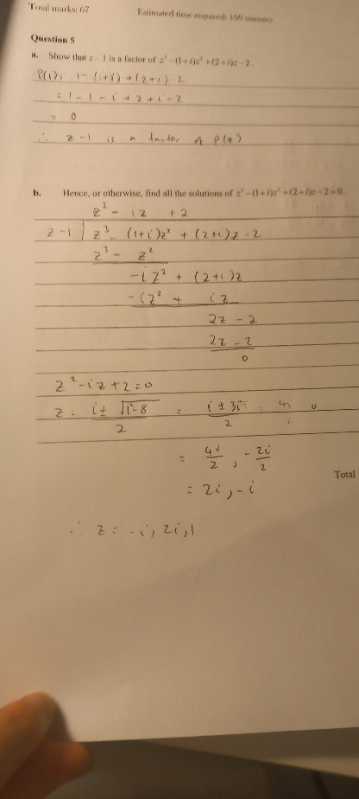 Total marks: 67
Estimated time required: 100 minutes
Question 5
a. Show that z - 1 is a factor of z³ - (1+i)z² + (2+i)z - 2.
P(1): 1 - (1+i) + (2+i) - 2
= 1 - 1 - i + 2 + i - 2
= 0
∴ z - 1 is a factor of P(z)
b. Hence, or otherwise, find all the solutions of z³ - (1+i)z² + (2+i)z - 2 = 0.
z² - iz + 2
z - 1 | z³ - (1+i)z² + (2+i)z - 2
z³ - z²
-iz² + (2+i)z
-iz² + iz
2z - 2
2z - 2
0
z² - iz + 2 = 0
z = (i ± √(i² - 8))/2 = (i ± 3i)/2
= 4i/2 , -2i/2
= 2i, -i
Total
∴ z = -i, 2i, 1